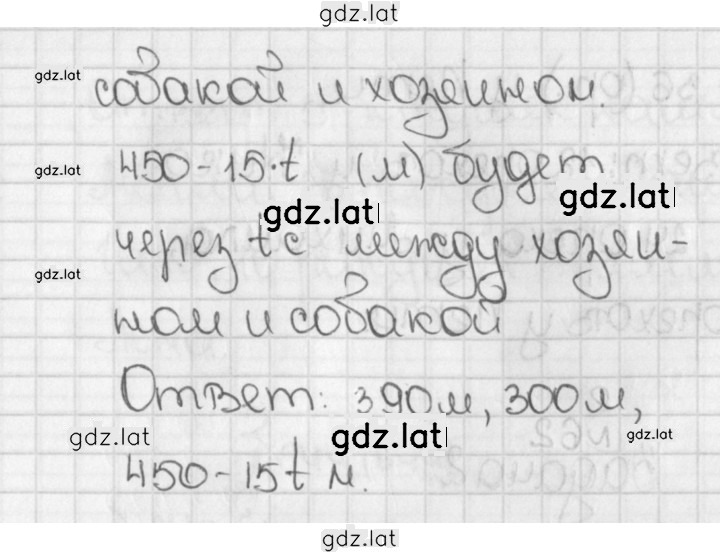 gdz.lat
gdz.lat
собакой и хозяином.
450-15·t (м) будет
gdz.lat
gdz.lat
gdz.lat
через t с между хозяи-
gdz.lat
ном и собакой
Ответ: 390м, 300м,
gdz.lat
gdz.lat
gdz.lat
450-15t м.
gdz.lat